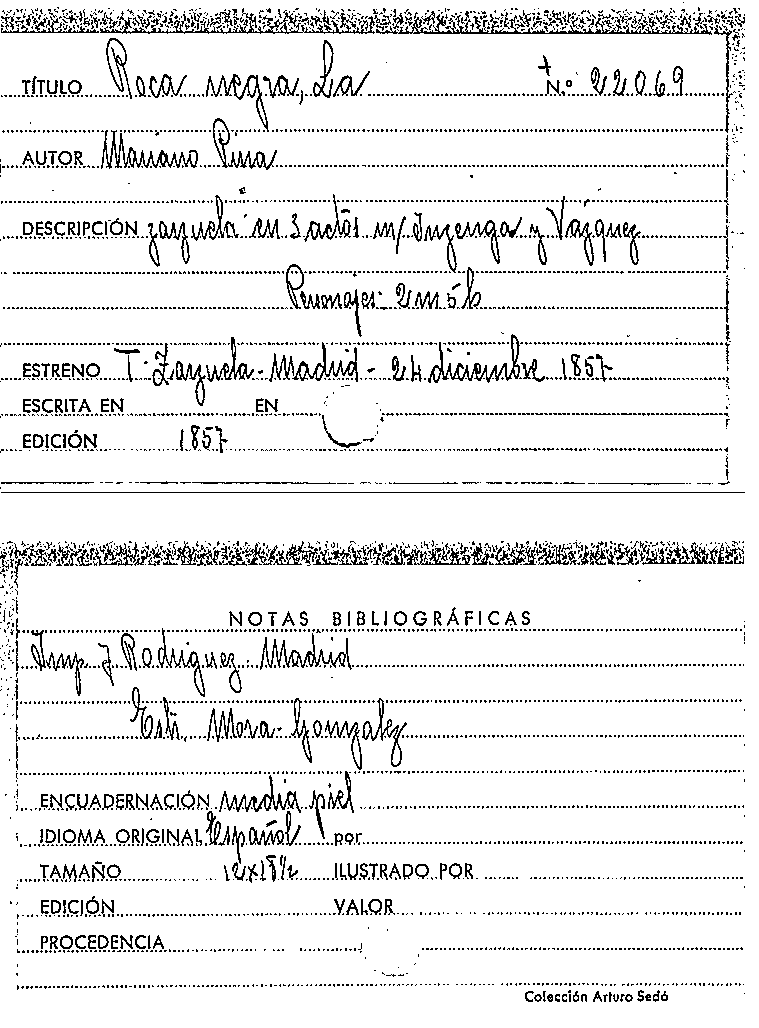 TÍTULO Roca negra, La Nº 22069
AUTOR Mariano Pina
DESCRIPCIÓN zarzuela en 3 actos m/ Inzenga y Vázquez
Personajes: 2m 5h
ESTRENO T. Zarzuela - Madrid - 24 diciembre 1857
ESCRITA EN EN
EDICIÓN 1857
NOTAS BIBLIOGRÁFICAS
Imp J Rodriguez. Madrid
Estr. Mora - Gonzalez
ENCUADERNACIÓN media piel
IDIOMA ORIGINAL Español por
TAMAÑO 12x18½ ILUSTRADO POR
EDICIÓN VALOR
PROCEDENCIA
Colección Arturo Sedó